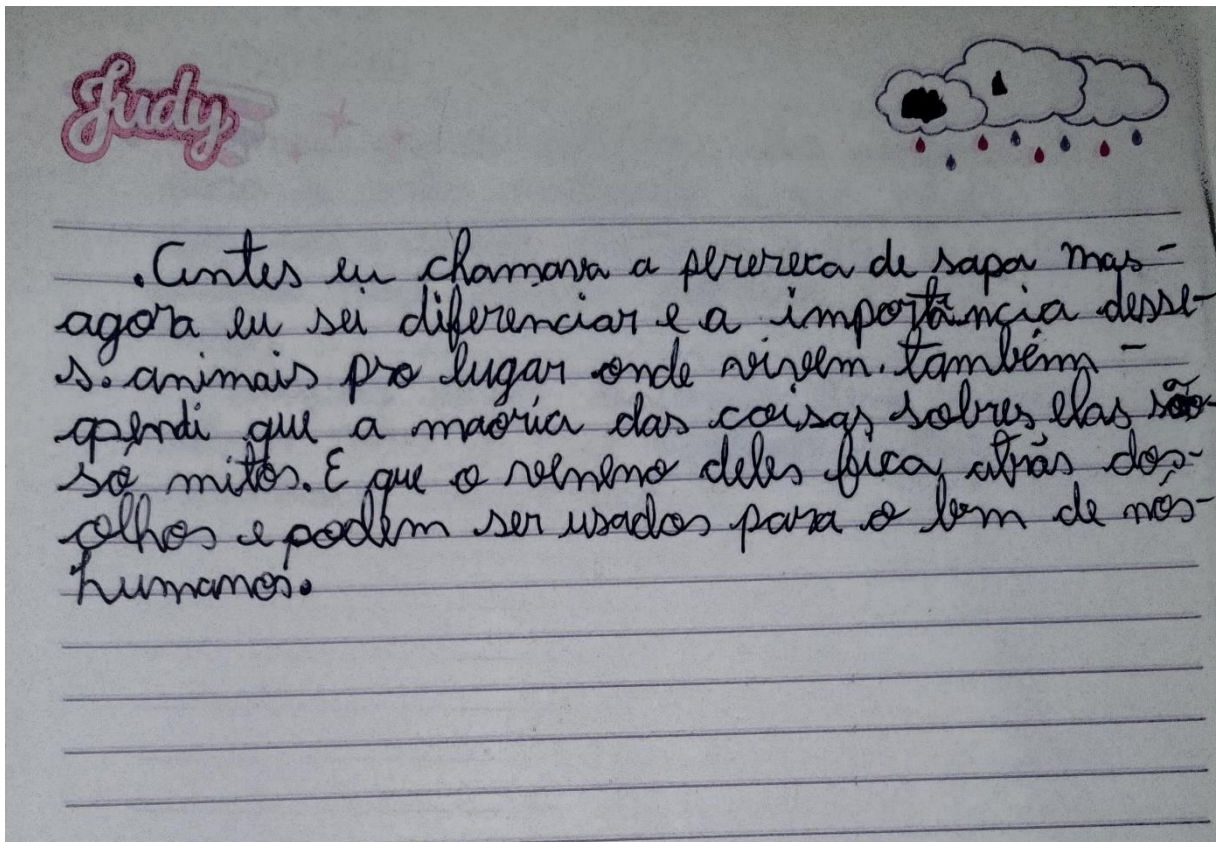 Judy
. Antes eu chamava a perereca de sapa mas-
agora eu sei diferenciar e a importância desse-
s. animais pro lugar onde vivem. também -
apendi que a maoria das coisas sobres elas são
só mitos. E que o veneno deles fica atrás dos-
olhos e podem ser usados para o bem de nós-
humanos.